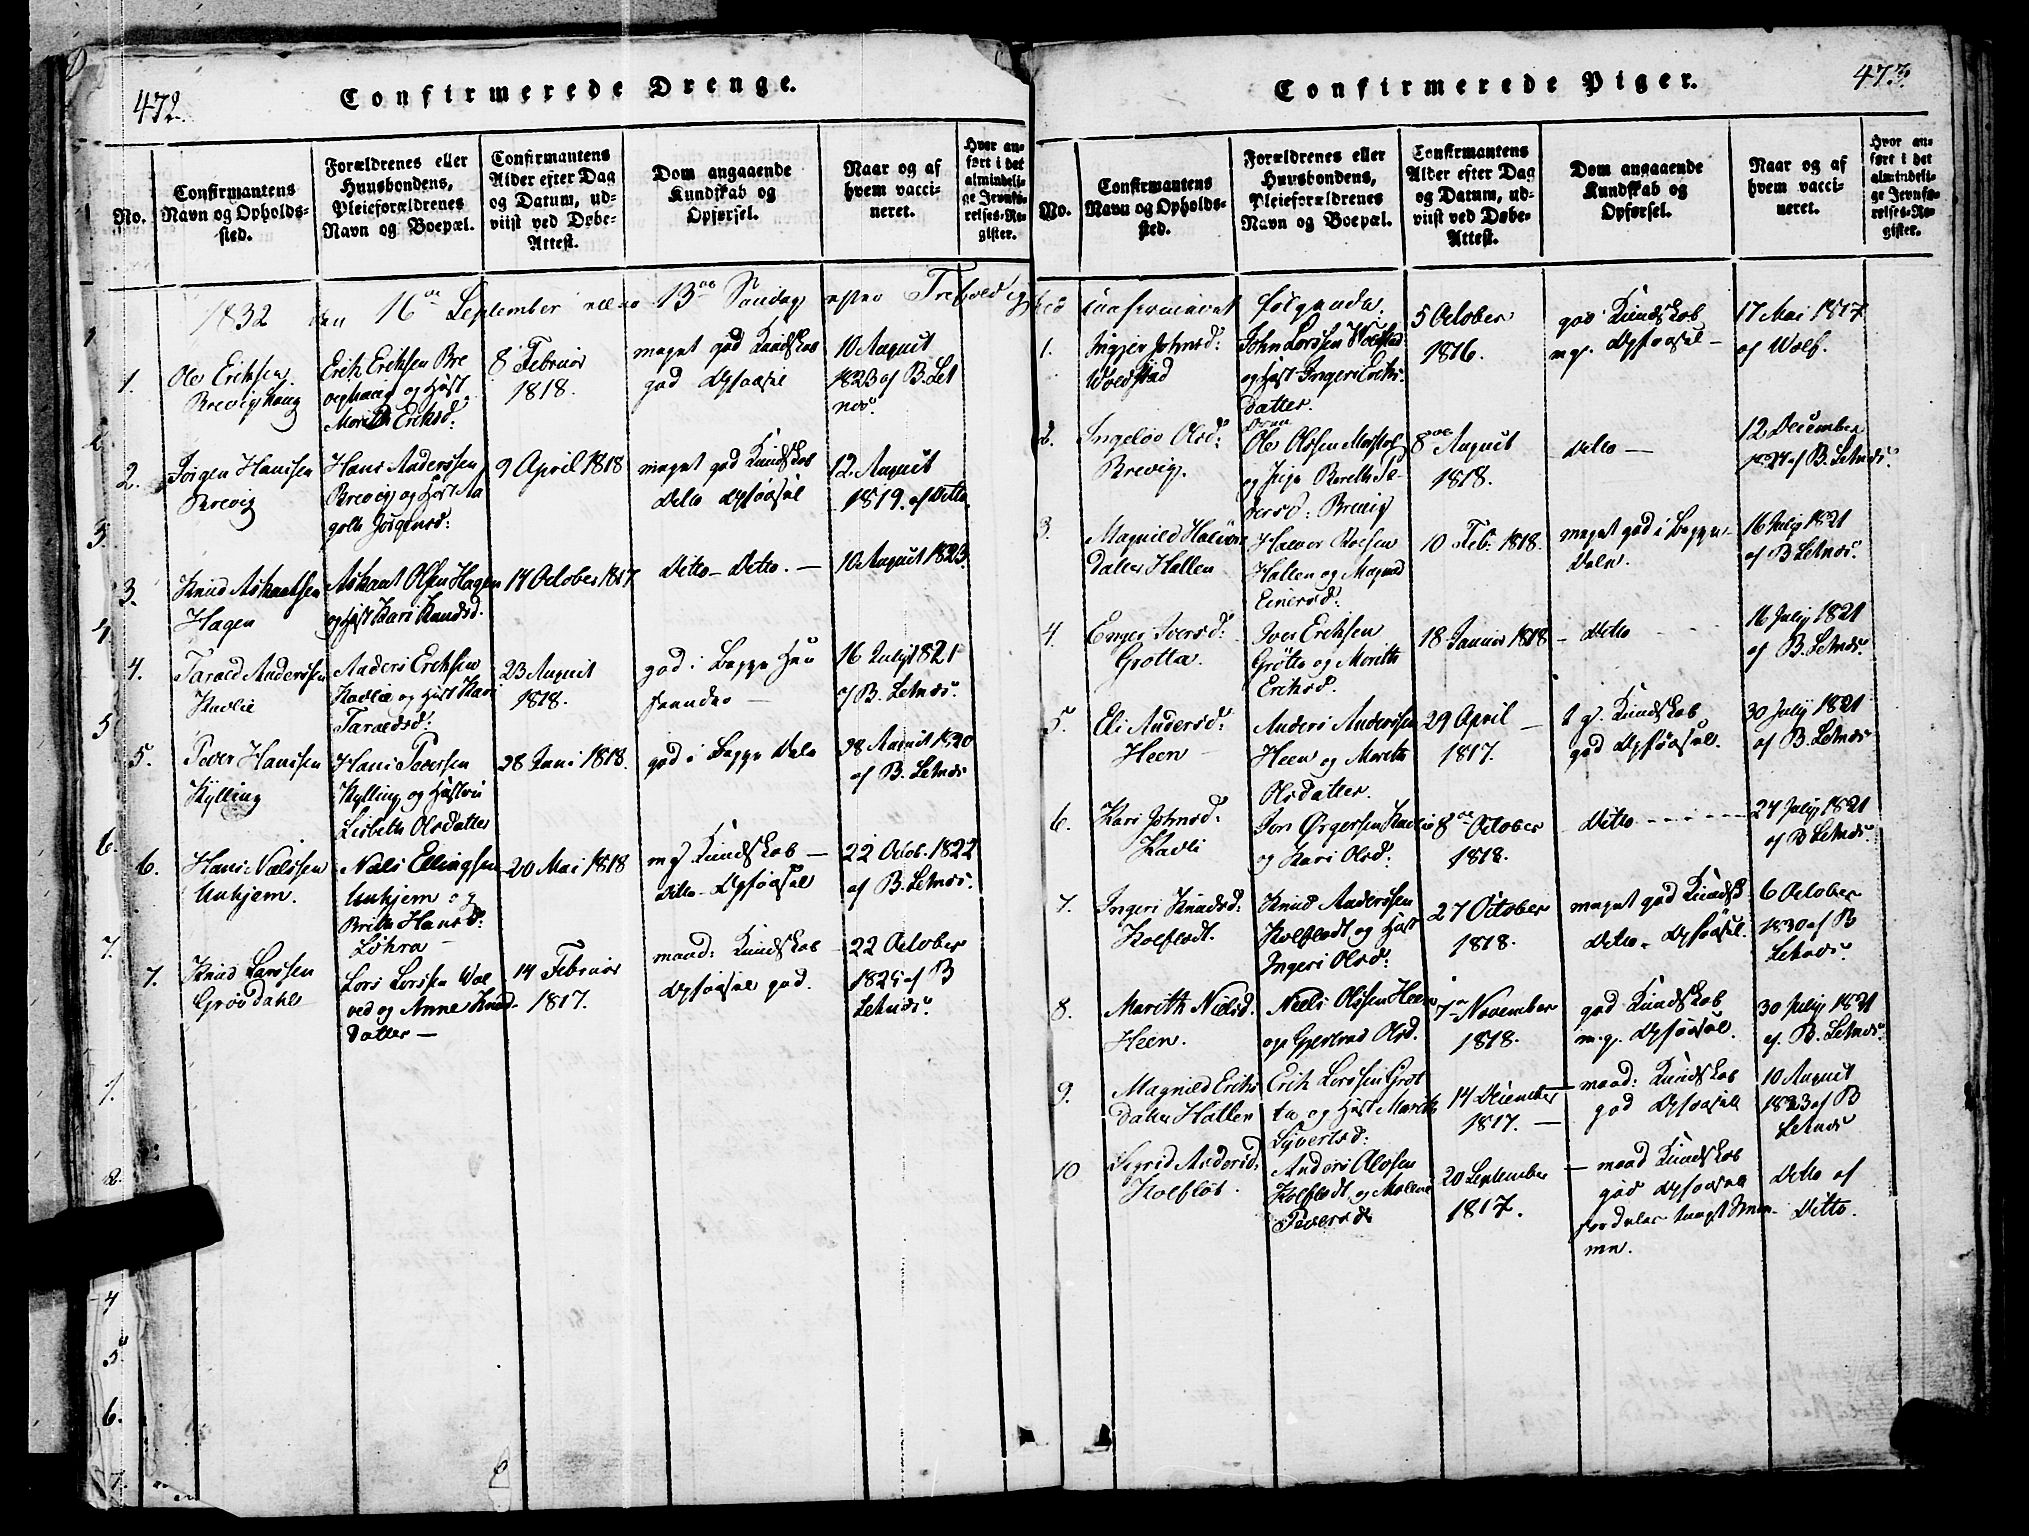 472.
Confirmerede Drenge.
No.
Confirmantens
Navn og Opholds-
sted.
Forældrenes eller
Huusbondens,
Pleieforældrenes
Navn og Boepæl.
Confirmantens
Alder efter Dag
og Datum, ud-
viist ved Døbe-
Attest.
Dom angaaende
Kundskab og
Opførsel.
Naar og af
hvem vacci-
neret.
Hvor an-
ført i det
almindeli-
ge Jevnfø-
relses-Re-
gister.
1832 den 16de September 13de Søndag efter Trefoldighed
1.
Ole Erichsen
Brevighaug
Erich Erichsen Bre
vighaug og Hust.
Moreth Erichsd:
8 Februar
1818.
meget god Kundskab
god Opførsel
10 August
1823 af B. Let
nes.
2.
Jørgen Hansen
Brevig
Hans Anderssen
Brevig og Hust Aa
gothe Jørgensd:
9 April 1818
meget god Kundskab
ditto Opførsel
12 August
1819. af Ditto
3.
Knud Askautsen
Hagen
Askaut Olsen Hagen
og Hust Kari Knudsd.
14 October 1817
Ditto - Ditto. -
10 August 1823.
4.
Tarald Anderssen
Kavlie
Anders Erichsen
Kavlie og Hust Kari
Taraldsd:
23 August
1818.
god i Begge Hen
seender -
16 July 1821
af B. Letnes.
5.
Peder Hanssen
Kylling
Hans Pedersen
Kylling og Hustru
Lisbeth Olsdatter
28 Juni 1818.
god i Begge Dele
28 August 1820
af B. Letnes
6.
Hans Nielssen
Unhjem.
Niels Ellingsen
Unhjem og
Brithe Hansd:
Løhra -
20 Mai 1818
mg Kundskab -
ditto Opførsel
22 Octob. 1822
af B. Letnes.
7.
Knud Larssen
Grøvdahl
Lars Larssen Vol
ved og Anne Knud-
datter -
14 Februar
1817.
maad: Kundskab
Opførsel god.
22 October
1825 af B
Letnes.
473.
Confirmerede Piger.
No.
Confirmantens
Navn og Opholds-
sted.
Forældrenes eller
Huusbondens,
Pleieforældrenes
Navn og Boepæl.
Confirmantens
Alder efter Dag
og Datum, ud-
viist ved Døbe-
Attest.
Dom angaaende
Kundskab og
Opførsel.
Naar og af
hvem vacci-
neret.
Hvor an-
ført i det
almindeli-
ge Jevnfø-
relses-Re-
gister.
confirmeret følgende:
1.
Ingjer Johnsd:
Voldstad
John Larssen Voldstad
og Hust Ingeri Erichs-
datter.
5 October
1816.
god Kundskab
mg. Opførsel -
17 Mai 1817
af Wolf.
2.
Ingelov Olsd:
Brevig.
Ole Olssen
og Pige Bereth Pe-
dersd: Brevig
8de August
1818.
ditto -
12 December
1827 af B. Letnes.
3.
Magnild Halvor
datter Hallen
Halvor Roesen
Hallen og Magnild
Einersd:
10 Feb. 1818.
meget god i Begge
Dele.
16 July 1821
af B Letnes.
4.
Enger Iversd:
Grotta.
Iver Erichsen
Grøtta og Moreth
Erichsd.
18 Januar 1818 -
Ditto
16 July 1821
af B. Letnes.
5
Eli Andersd:
Heen
Anders Anderssen
Heen og Moreth
Olsdatter.
29 April -
1817.
tg. Kundskab
god Opførsel.
30 July 1821
af B. Letnes
6.
Kari Johnsd:
Kavli
Jon Ørgersen Kavlie
og Kari Olsd:
8de October
1818.
Ditto
27 July 1821
af B Letnes.
7.
Ingeri Knudsd:
Kolflodt.
Knud Anderssen
Kolflodt og Hust
Ingeri Olsd:
27 October
1818.
meget god Kundsk
Ditto - Opførsel.
6 October
1830 af B
Letnes.
8.
Marith Nielsd.
Heen.
Niels Olssen Heen
og Gjertrud Olsd.
7de November
1818.
god Kundskab
mg. Opførsel.
30 July 1821
af. B. Letnes.
9.
Magnild Erichs
datter Hallen
Erich Larssen Grøt
ta og Hust Marith
Sivertsd:
14 December
1817. -
maad: Kundskab
god Opførsel
10 August
1823 af B
Letnes
10
Sigrid Andersd.
Kolfløt.
Anders Olsen
Kolflodt og Malene
Pedersd:
20 September
1817.
- maad Kundskab
god Opførsel
Ditto af
Ditto.